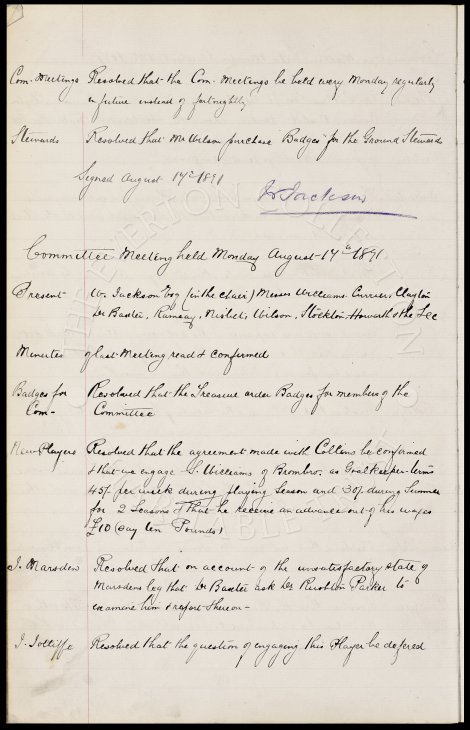 Com. Meetings Resolved that the Com. Meetings be held every Monday regularly
in future instead of fortnightly
Stewards Resolved that Mr Wilson purchase Badges for the Ground Stewards
Signed August 17th 1891
W Jackson
Committee Meeting held Monday August 17th 1891
Present W. Jackson Esq (in the chair) Messrs Williams. Currier, Clayton
Dr Baxter, Ramsay, Nisbet, Wilson, Stockton, Howarth & the Sec
Minutes of last Meeting read & confirmed
Badges for Resolved that the Treasurer order Badges for members of the
Com- Committee
New Players Resolved that the agreement made with Collins be confirmed
& that we engage S. Williams of Brombro. as Goalkeeper terms
45/ per week during playing Season and 30/ during Summer
for 2 Seasons & that he receive an advance out of his wages
£10 (say ten Pounds)
J. Marsden Resolved that on account of the unsatisfactory state of
Marsdens leg that Dr Baxter ask Dr Rushton Parker to
examine him & report thereon-
J. Jolliffe Resolved that the question of engaging this Player be defered
THE EVERTON COLLECTION
CHARITABLE TRUST